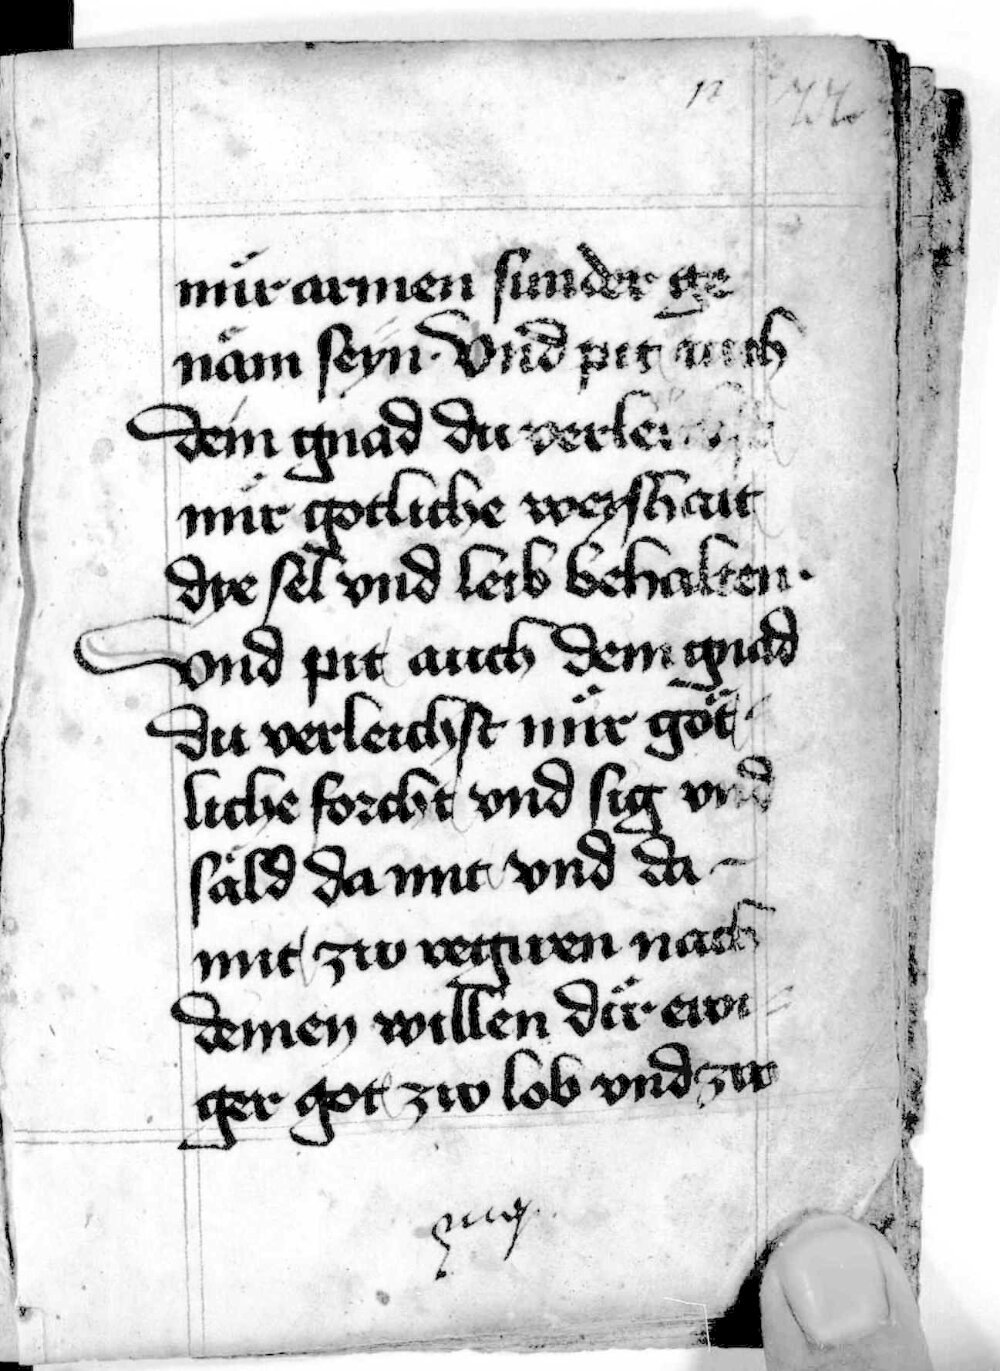 mir armen sunder ge
näm seyn. Vnd pit auch
dein gnad du verleichst
mir gotliche weyshait
dye sel vnd leib behalten.
vnd pit auch dein gnad
du verleichst mir göt
liche forcht vnd sig vnd
säld da mit vnd da-
mit zw regiren nach
deinen willen dir ewi-
ger got zw lob vnd zw